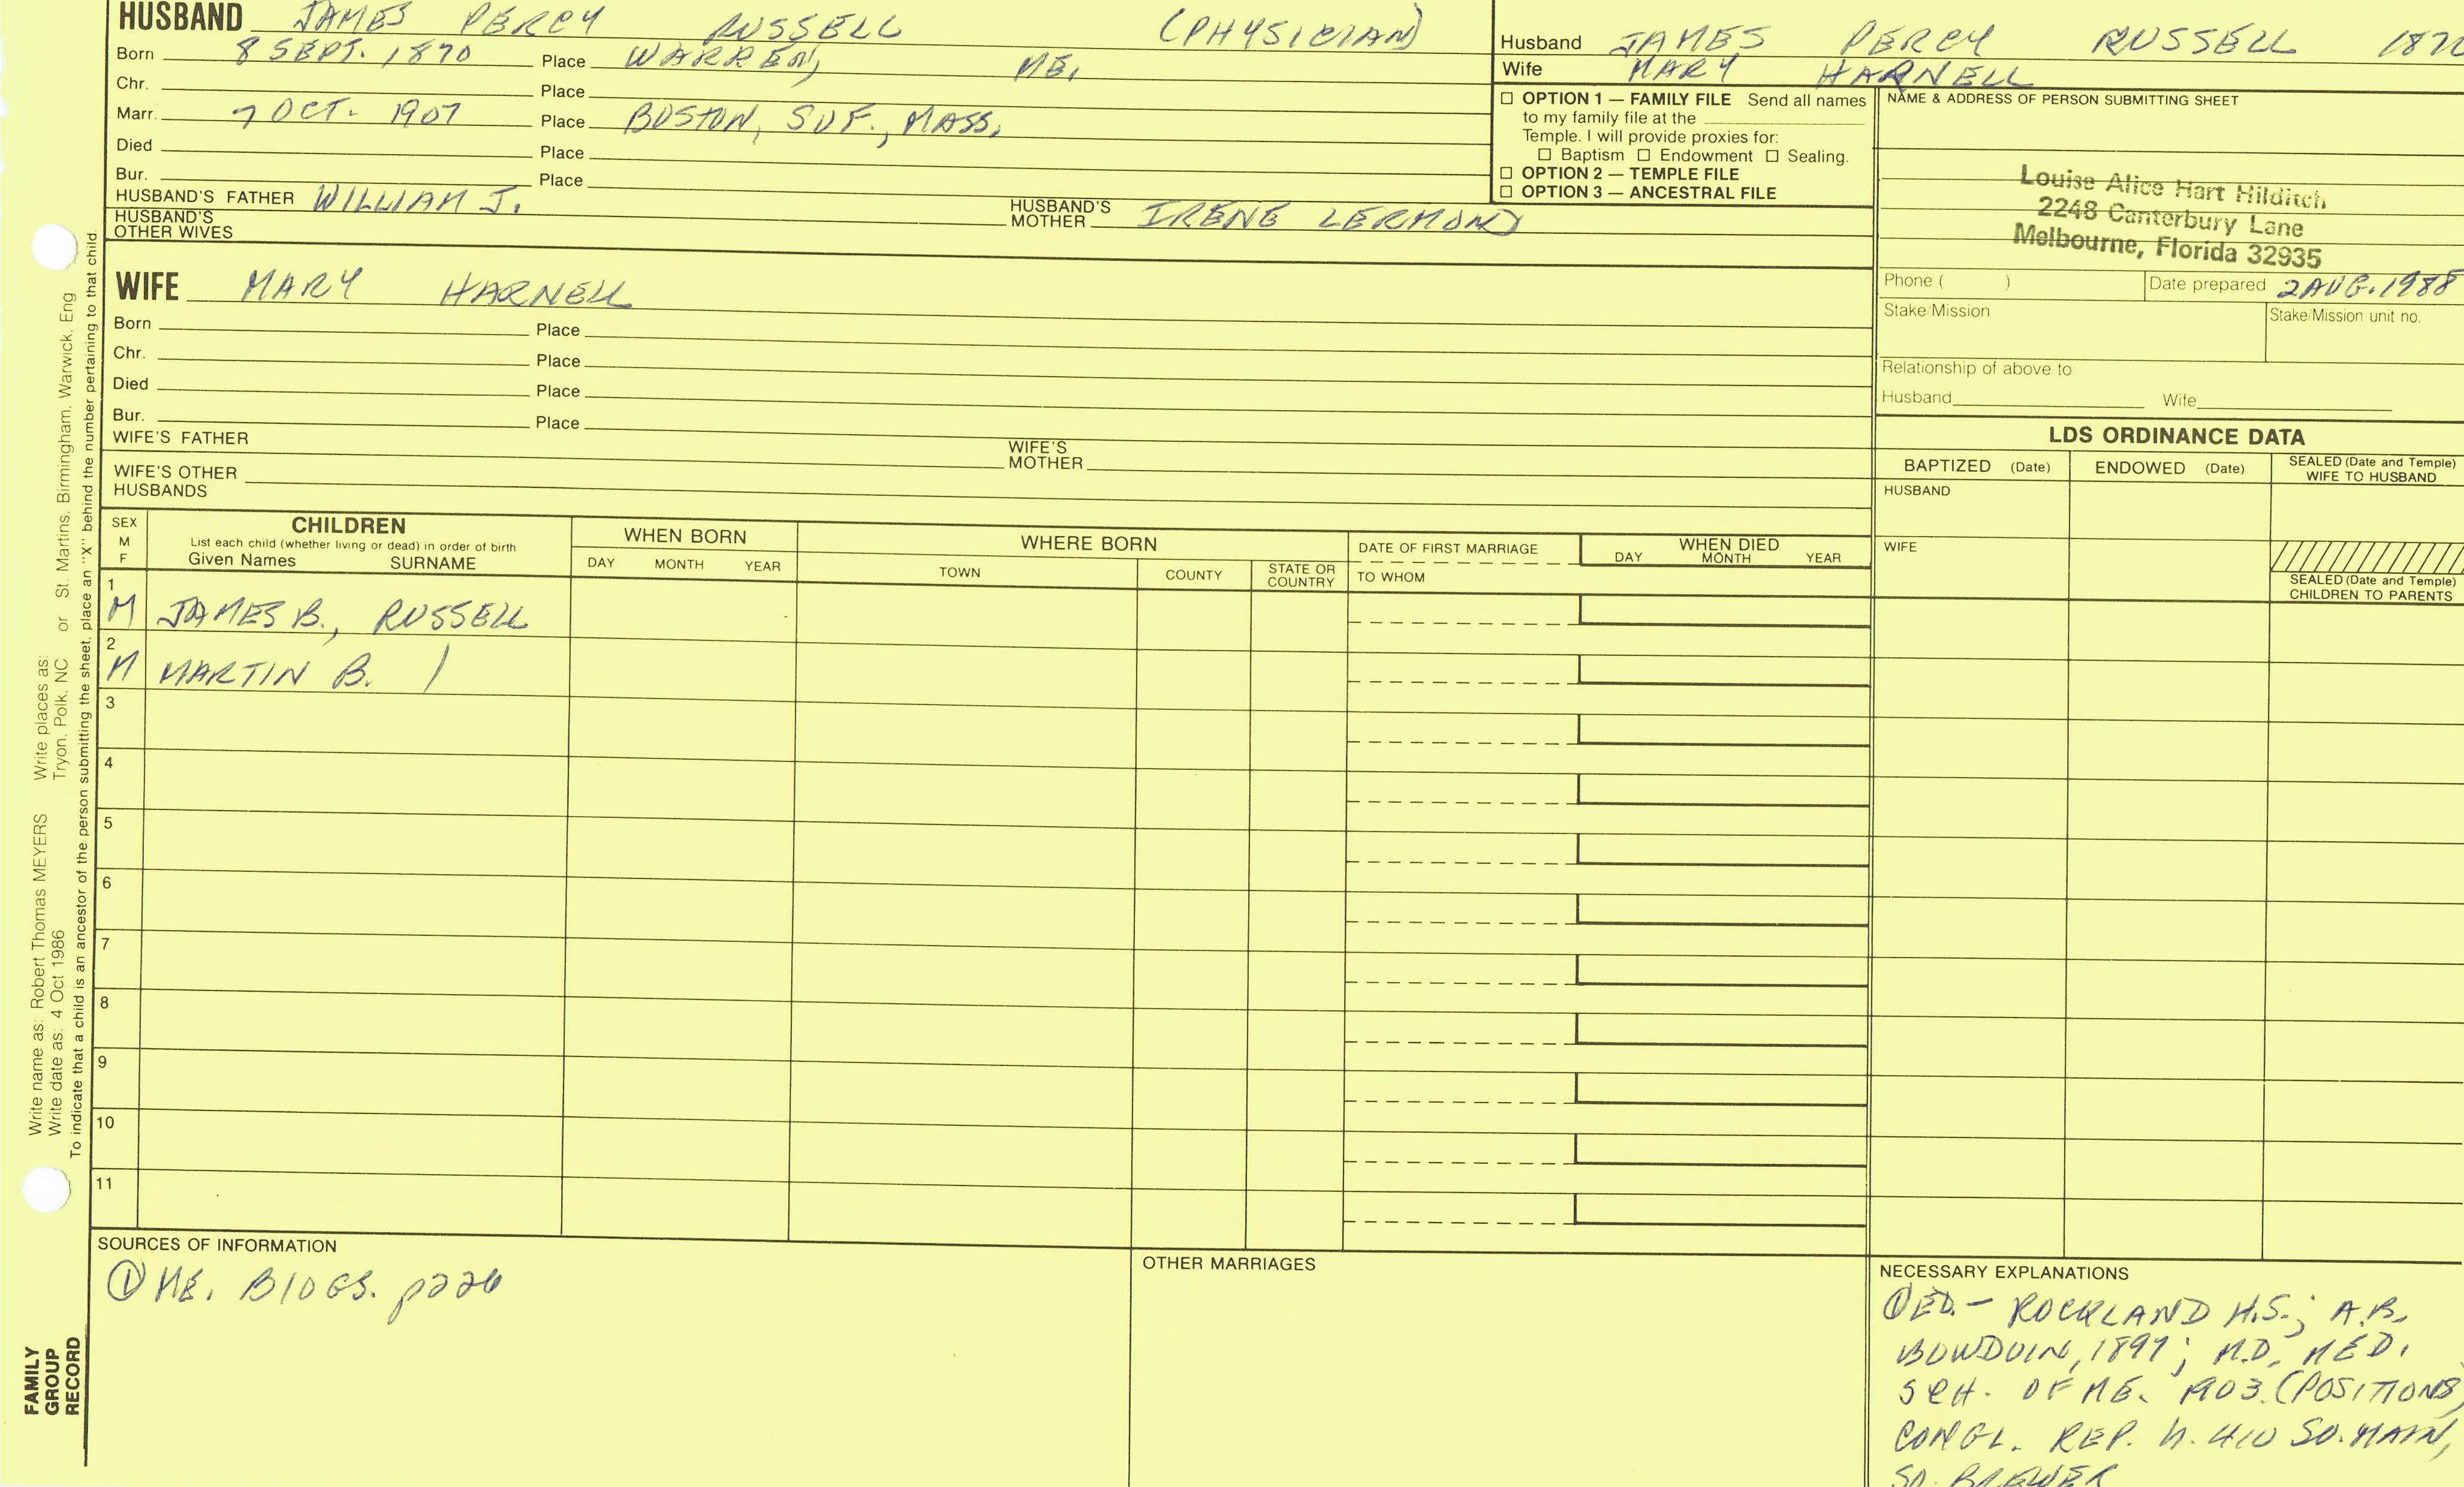 HUSBAND JAMES PERCY RUSSELL (PHYSICIAN)
Born 8 SEPT. 1870 Place WARREN, ME.
Chr. Place
Marr. 7 OCT. 1907 Place BOSTON, SUF., MASS.
Died Place
Bur. Place
HUSBAND'S FATHER WILLIAM J. HUSBAND'S MOTHER IRENE LERMOND
HUSBAND'S OTHER WIVES
WIFE MARY HARNELL
Born Place
Chr. Place
Died Place
Bur. Place
WIFE'S FATHER WIFE'S MOTHER
WIFE'S OTHER HUSBANDS
Husband JAMES PERCY RUSSELL
Wife MARY HARNELL
☐ OPTION 1 — FAMILY FILE Send all names
to my family file at the
Temple. I will provide proxies for:
☐ Baptism ☐ Endowment ☐ Sealing.
☐ OPTION 2 — TEMPLE FILE
☐ OPTION 3 — ANCESTRAL FILE
NAME & ADDRESS OF PERSON SUBMITTING SHEET
Louise Alice Hart Hilditch
2248 Canterbury Lane
Melbourne, Florida 32935
Phone ( ) Date prepared 2 AUG. 1988
Stake/Mission Stake/Mission unit no.
Relationship of above to:
Husband Wife
LDS ORDINANCE DATA
BAPTIZED (Date) ENDOWED (Date) SEALED (Date and Temple) WIFE TO HUSBAND
HUSBAND
WIFE
SEALED (Date and Temple)
CHILDREN TO PARENTS
SEX M F
CHILDREN
List each child (whether living or dead) in order of birth
Given Names SURNAME
WHEN BORN
DAY MONTH YEAR
WHERE BORN
TOWN COUNTY STATE OR COUNTRY
DATE OF FIRST MARRIAGE
TO WHOM
WHEN DIED
DAY MONTH YEAR
1 M JAMES B., RUSSELL
2 M MARTIN B. /
3
4
5
6
7
8
9
10
11
SOURCES OF INFORMATION
① ME. BIOGS. p226
OTHER MARRIAGES
NECESSARY EXPLANATIONS
① ED. – ROCKLAND H.S.; A.B.
BOWDOIN, 1897; M.D. MED.
SCH. OF ME. 1903. (POSITIONS)
CONGL. REP. h. 410 SO. MAIN,
SO. BREWER
Write name as: Robert Thomas MEYERS Write places as: St. Martins, Birmingham, Warwick, Eng
Write date as: 4 Oct 1986 Tryon, Polk, NC or
To indicate that a child is an ancestor of the person submitting the sheet, place an "X" behind the number pertaining to that child.
FAMILY
GROUP
RECORD